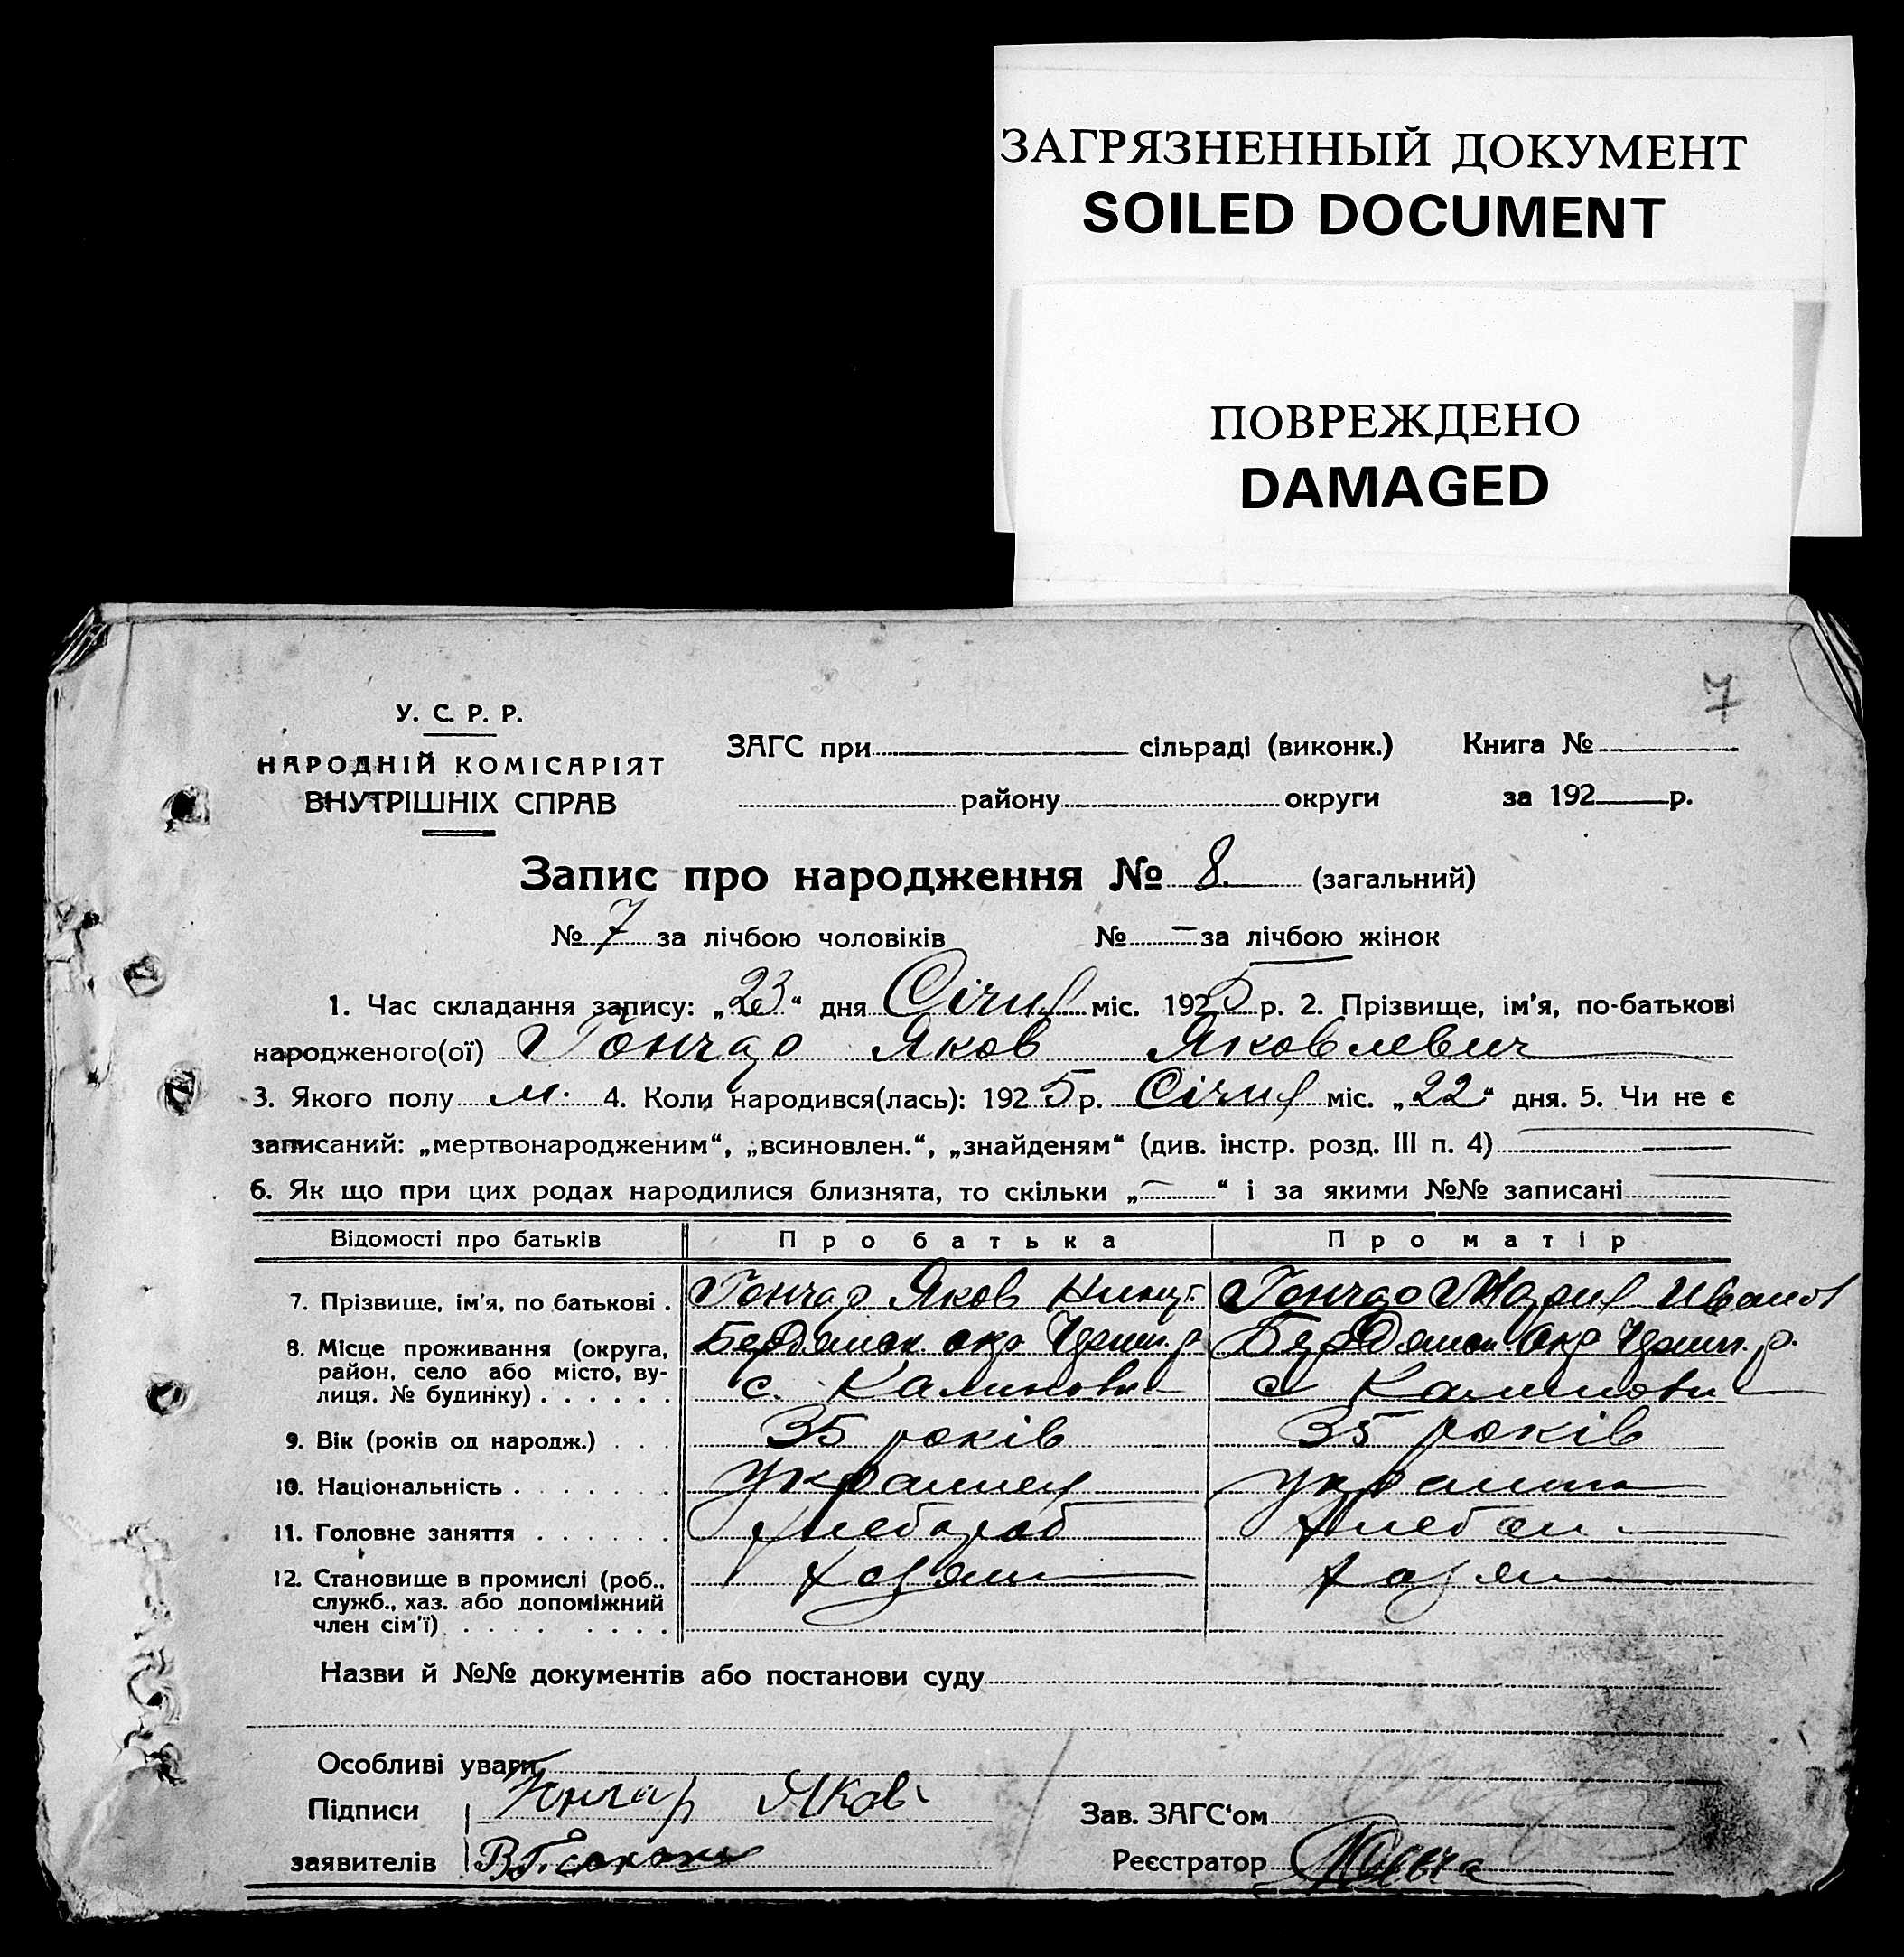 ЗАГРЯЗНЕННЫЙ ДОКУМЕНТ
SOILED DOCUMENT
ПОВРЕЖДЕНО
DAMAGED
7
У. С. Р. Р.
НАРОДНІЙ КОМІСАРІЯТ
ВНУТРІШНІХ СПРАВ
ЗАГС при сільраді (виконк.) Книга №
району округи за 192 р.
Запис про народження № 8 (загальний)
№ 7 за лічбою чоловіків № – за лічбою жінок
1. Час складання запису: „23“ дня Січня міс. 1925 р. 2. Прізвище, ім'я, по-батькові
народженого(ої) Гончар Яков Яковлевич
3. Якого полу м. 4. Коли народився(лась): 1925 р. Січня міс. „22“ дня. 5. Чи не є
записаний: „мертвонародженим“, „всиновлен.“, „знайденям“ (див. інстр. розд. III п. 4)
6. Як що при цих родах народилися близнята, то скільки „—“ і за якими №№ записані
Відомості про батьків Про батька Про матір
7. Прізвище, ім'я, по батькові . Гончар Яков Гончар Мария Иванов
8. Місце проживання (округа, Бердянск окр Черниг. р Бердянск окр Черниг. р.
район, село або місто, ву-
лиця, № будинку) . . . . . . с. Калиновка с Калиновка
9. Вік (років од народж.) . . . 35 років 35 років
10. Національність . . . . . . . украинец украинка
11. Головне заняття . . . . . . хлебороб
12. Становище в промислі (роб., хозяин
служб., хаз. або допоміжний
член сім'ї) . . . . . . . . .
Назви й №№ документів або постанови суду
Особливі уваги
Підписи Гончар Яков
Зав. ЗАГС‘ом
заявителів
Реєстратор